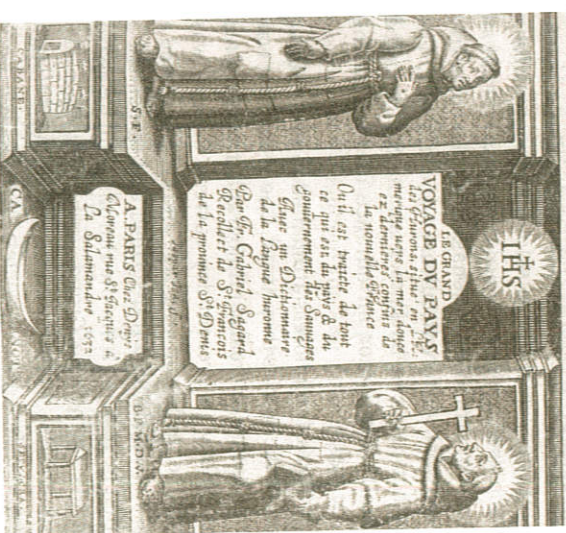 IHS
LE GRAND
VOYAGE DV PAYS
des Hurons, situé en l'A-
merique vers la mer douce
ez derniers confins de
la nouuelle France
Ou il est traicté de tout
ce qui est du pays & du
gouuernement des Sauuages
Auec un Dictionnaire
de la langue huronne
Par Fr. Gabriel Sagard
Recollect de St François
de la prouince St Denis
S. F.
B. F. M. D. V.
A. PARIS Chez Denys
Moreau rue St Iacques a
La Salamandre 1632
CABANE
CA NOT